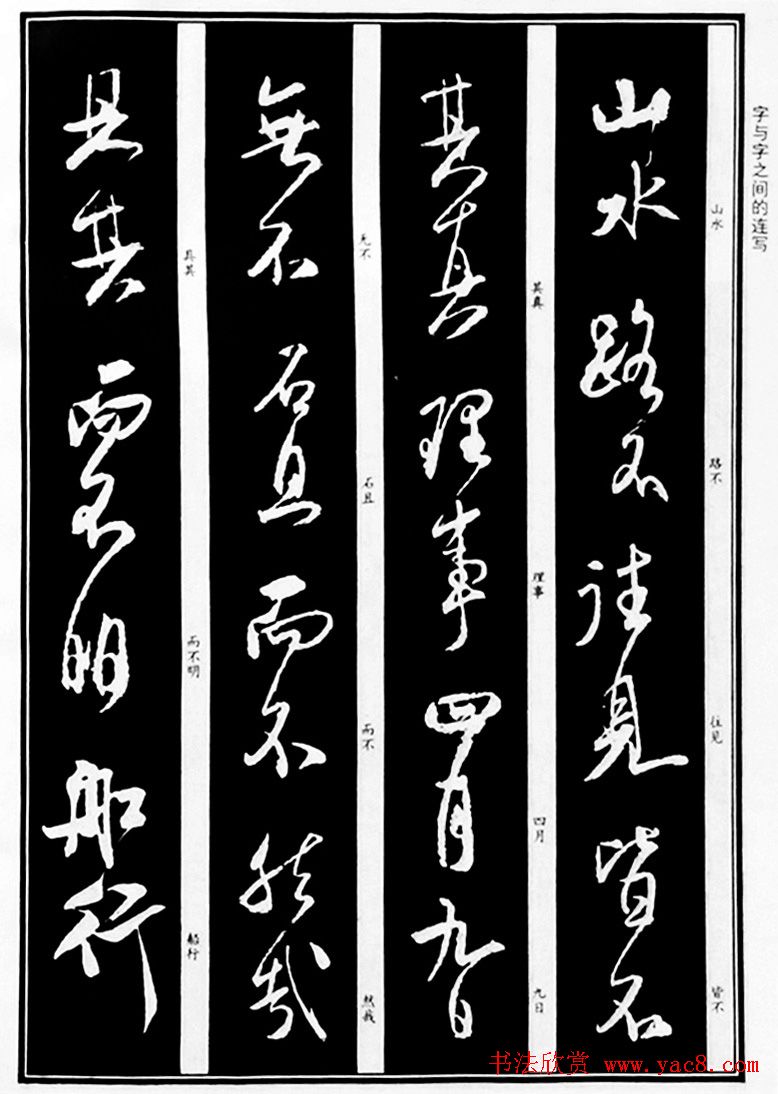 字与字之间的连写
山水
路不
往见
皆不
山水路不往見皆不
其真
理事
四月
九日
其真理事四月九日
无不
石且
而不
然我
無不石且而不然我
具其
而不明
船行
具其而不明船行
书法欣赏 www.yac8.com